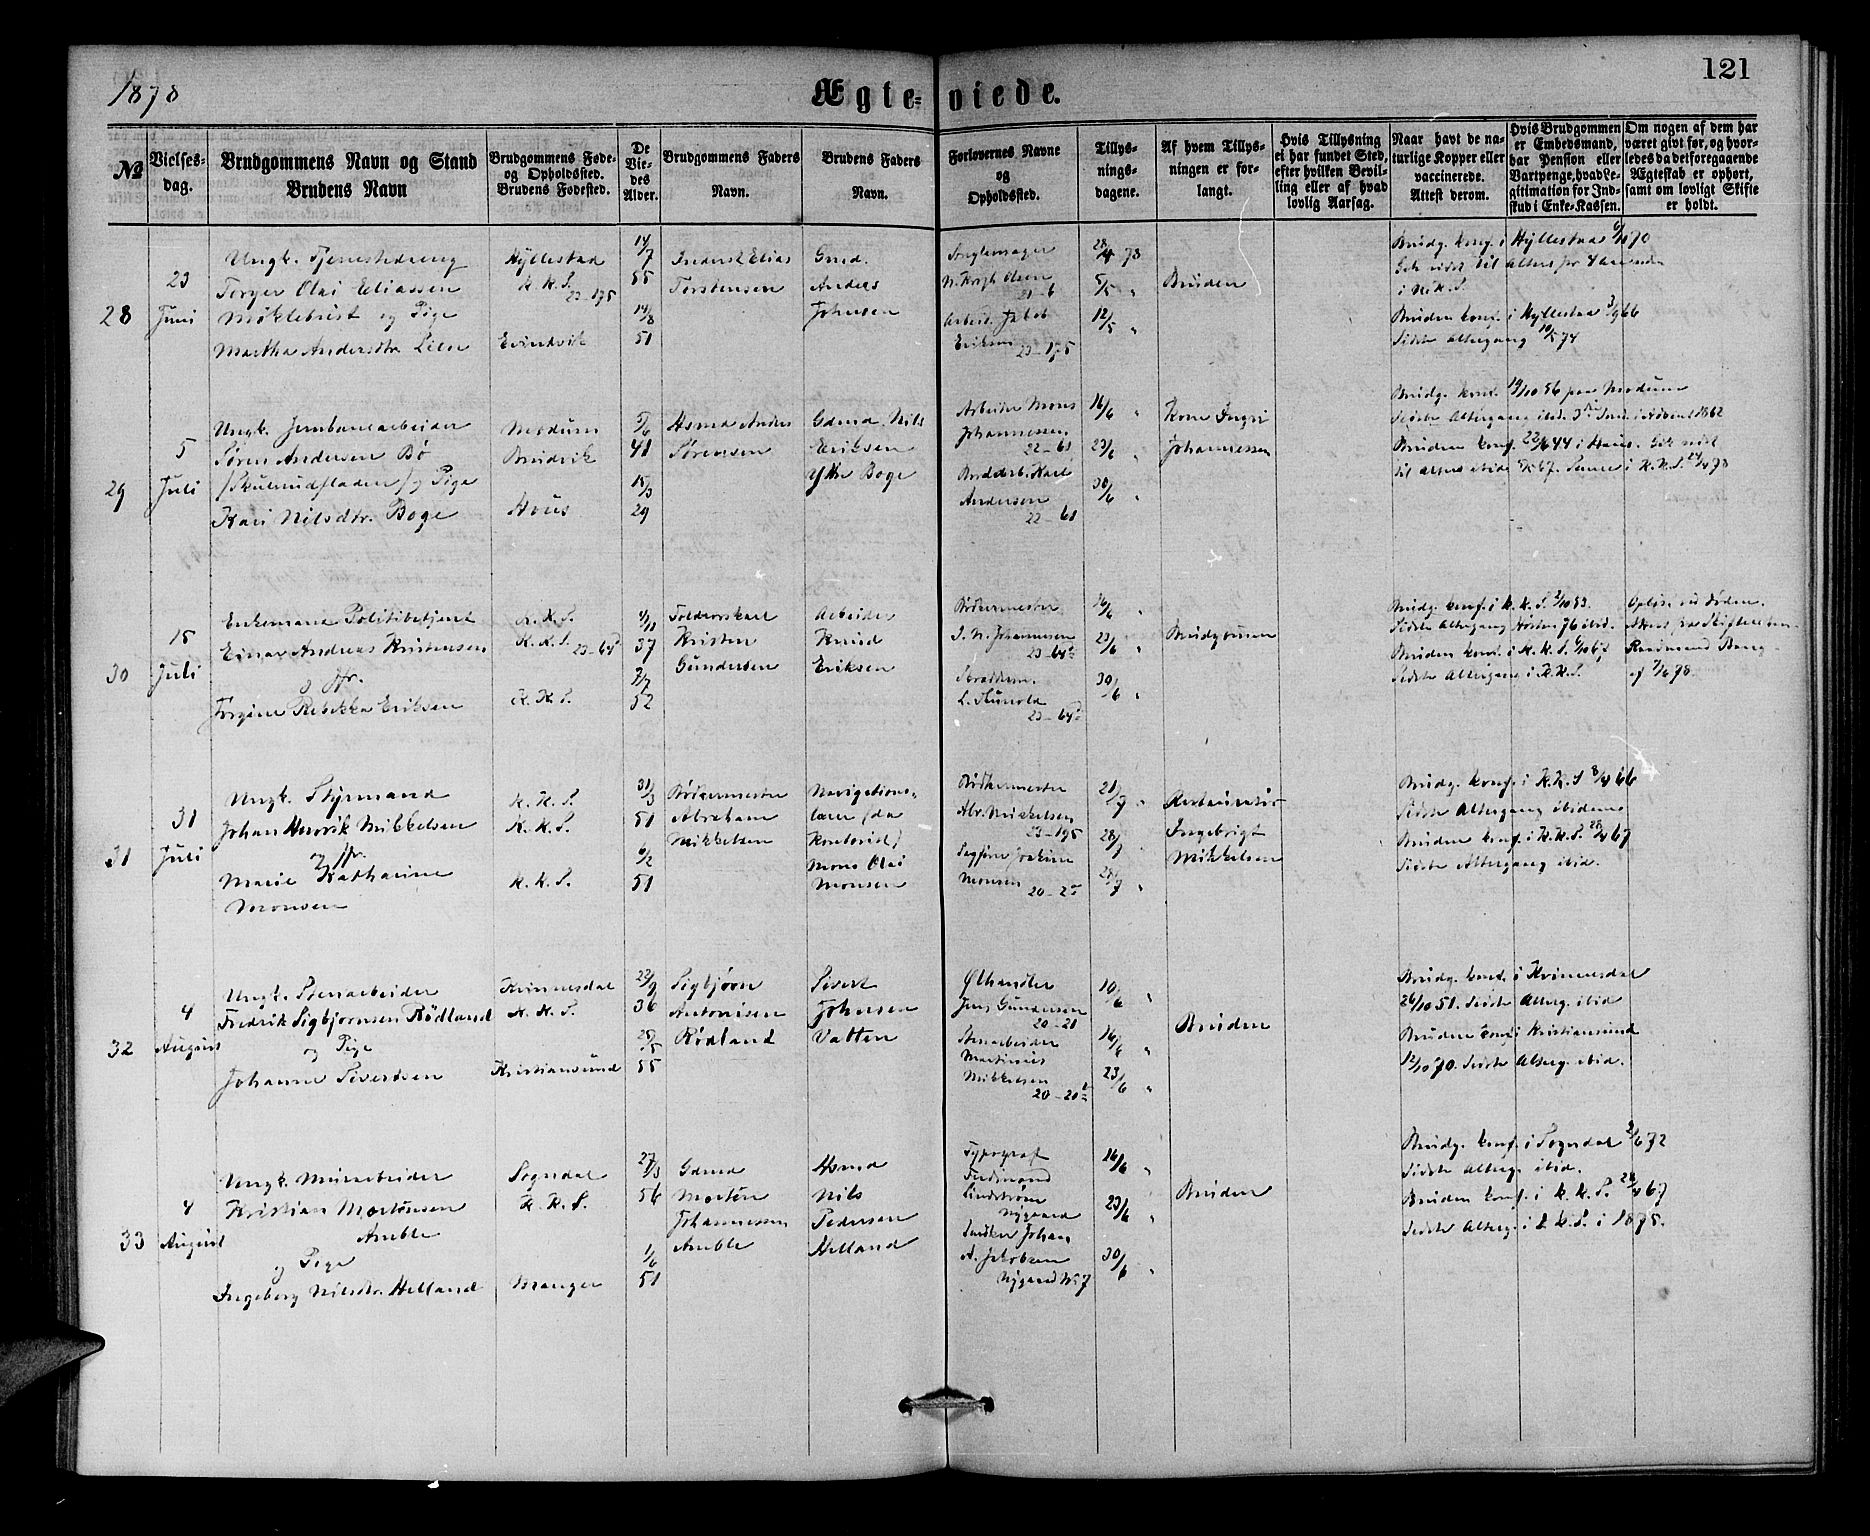 1878
Ægte-viede.
121
№
Vielses-
dag.
Brudgommens Navn og Stand
Brudens Navn
Brudgommens Føde-
og Opholdssted.
Brudens Fødested.
De
Vie-
des
Alder.
Brudgommens Faders
Navn.
Brudens Faders
Navn.
Forlovernes Navne
og
Opholdssted.
Tillys-
nings-
dagene.
Af hvem Tillys-
ningen er for-
langt.
Hvis Tillysning
ei har fundet Sted,
efter hvilken Bevil-
ling eller af hvad
lovlig Aarsag.
Naar havt de na-
turlige Kopper eller
vaccinerede.
Attest derom.
Hvis Brudgommen
er Embedsmand,
har Pension eller
Vartpenge, hvad Le-
gitimation for Ind-
skud i Enke-Kassen.
Om nogen af dem har
været gift før, og hvor-
ledes da det foregaaende
Ægteskab er ophørt,
samt om lovligt Skifte
er holdt.
28
23
Juni
Ungk. Tjenestedreng
Torger Olai Eliassen
Möklebust og Pige
Martha Andersdtr.
Hyllestad
K.K.S.
23-195
Evindvik
14/7
55
14/8
51
Frederik Elias
Torstensen
Gmd.
Anders
Johnsen
Seglemager
N. Krogh Olsen
21-6
Arbeid. Jakob
Eriksen
23-195
28/4 78
5/5 "
12/5 "
Bruden
Brudg. konf. i Hyllestad 70
Gik sidst til Alters for 4 Uger siden
i N.K.S.
Bruden konf. i Hyllestad 3/9 66
Sidste Altergang 10/5 74
29
5
Juli
Ungk. Jernbanearbeider
Søren Andersen Bø
(Skulerudfladen) og Pige
Kari Nilsdtr. Boge
Modum
Brudvik
Hous
5/6
41
15/3
29
Hsmd Anders
Sørensen
Gdmd Nils
Eriksen
Ytre Boge
Arbeider Mons
Johannessen
22-61
Karl
Andersen
22-61
16/6 "
23/6 "
30/6 "
Kone Ingri
Johannessen
Brudg. konf. 19/10 56 paa Modum
Sidste Altergang ibid. 3die Snd. i Advent 1862
Bruden konf. 22/9 44 i Haus. Gik sidst
til Alters ibid. 67. i K.K.S. 14/4 78
30
15
Juli
Enkemand Politibetjent
Einar Andreas Kristensen
og Jfr.
Jorgine Rebekka Eriksen
K.K.S.
K.K.S. 23-64d
K.K.S.
4/11
37
2/7
52
Toldorskarl
Kristen
Gundersen
Arbeider
Knud
Eriksen
Bødkermester
J. N. Johannesen
23-64
L. Sünold
23-64
16/6 "
23/6 "
30/6 "
Brudgommen
Brudg. konf. i K.K.S. 2/10 53.
Sidste Altergang Høsten 76 ibid.
Bruden konf. i K.K.S. 6/10 67
Sidste Altergang i K.K.S.
Opløst ved Døden.
Attest fra Skifteretten
af 7/6 78.
31
31
Juli
Ungk. Styrmand
Johan Henrik Mikkelsen
og Jfr.
Marie Katharine
Monsen
K.K.S.
K.K.S.
K.K.S.
31/3
51
6/2
51
Bødkermester
Abraham
Mikkelsen
Navigations-
lærer (da
Kontorist)
Mons Olai
Monsen
Bødkermester
Abr. Mikkelsen
23-195
Joakim
Monsen
20-2
21/7 "
28/7 "
28/7 "
Restauratør
Ingebrigt
Mikkelsen
Brudg. konf. i K.K.S 8/4 66
Sidste Altergang ibidem
Bruden konf. i K.K.S. 28/4 67
Sidste Altergang ibid.
32
4
August
Ungk. Stenarbeider
Fredrik Sigbjørnsen Rödland
og Pige
Johanne Sivertsen
Kvinnesdal
K.K.S.
Kristiansund
22/9
36
28/5
55
Sigbjørn
Antonisen
Rödland
Sivert
Johnsen
Vatten
Ølhandler
Jens Gundersen
20-21
Stenarbeider
Martinius
Mikkelsen
20-20
10/6 "
16/6 "
23/6 "
Bruden
Brudg. konf. i Kvinnesdal
26/10 51. Sidste Alterg. ibid
Bruden konf. i Kristiansund
12/10 70. Sidste Alterg. ibid.
33
4
August
Ungk. Murarbeider
Kristian Mortensen
Amble
og Pige
Ingeborg Nilsdtr. Helland
Sogndal
K.K.S.
Manger
27/3
56
1/6
51
Gdmd
Morten
Johannessen
Amble
Hsmd
Nils
Pedersen
Helland
Typograf
Ferdinand
Lindstrøm
Nygaard
Snedker Johan
A. Jakobsen
Nygaard No 7
16/6 "
23/6 "
30/6 "
Bruden
Brudg. konf. i Sogndal 2/6 72
Sidste Alterg. ibid.
Bruden konf. i K.K.S. 28/4 67
Sidste Alterg. i K.K.S. i 1875.